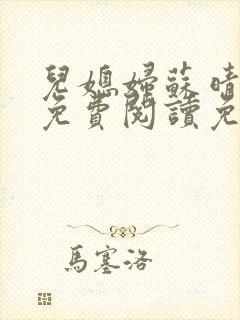 兒媳婦蘇晴
免費閱讀免
馬塞洛